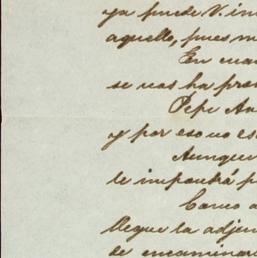 ya puede V. in
aquello, pues m
En cua
se nos ha pre
Pepe An
y por eso no es
Aunque
le impondrá p
Caneo a
llegue la adjun
de encaminar